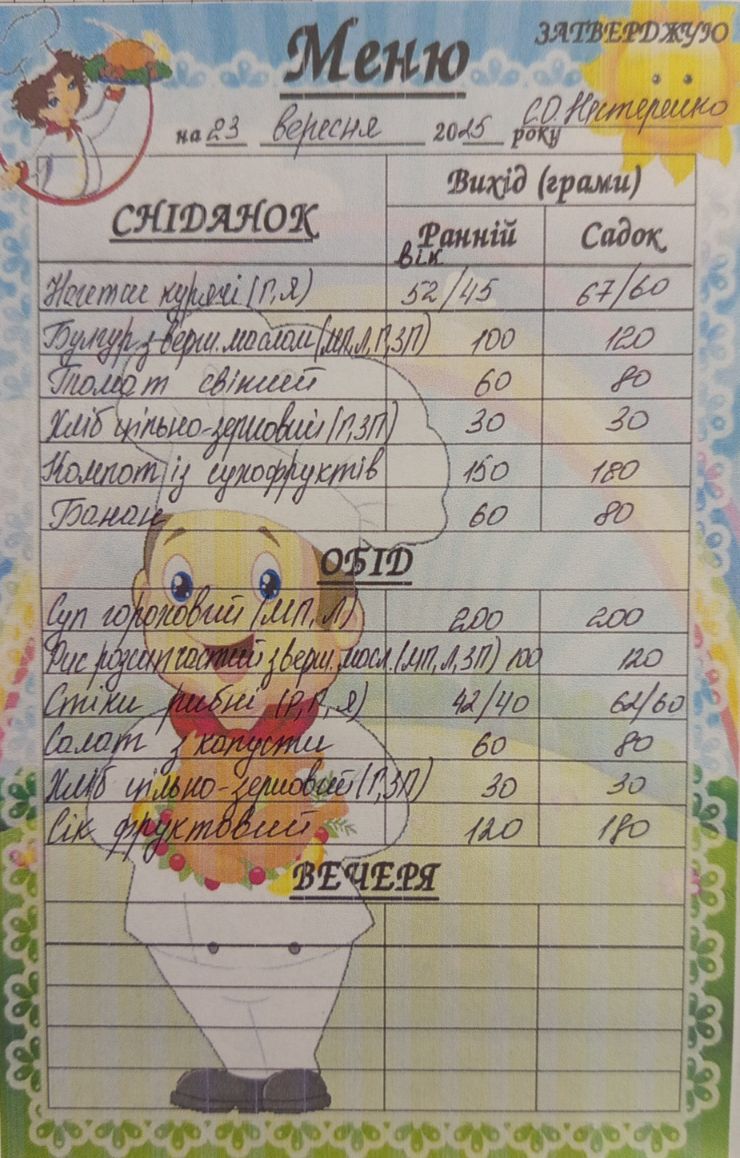 Меню
ЗАТВЕРДЖУЮ
на 23 вересня 2025 року
СНІДАНОК Вихід (грами)
Ранній вік Садок
Нагетси курячі (Г,Я) 52/45 67/60
Булгур з верш. маслом (МП,Л,Г,ЗП) 100 120
Томат свіжий 60 80
Хліб цільно-зерновий (Г,ЗП) 30 30
Компот із сухофруктів 150 180
Банан 60 80
ОБІД
Суп гороховий (МП, Л) 200 200
Рис розсипчастий з верш. масл. (МП,Л,ЗП) 100 120
Стіки рибні (Р,Г,Я) 42/40 62/60
Салат з капусти 60 80
Хліб цільно-зерновий (Г,ЗП) 30 30
Сік фруктовий 120 180
ВЕЧЕРЯ